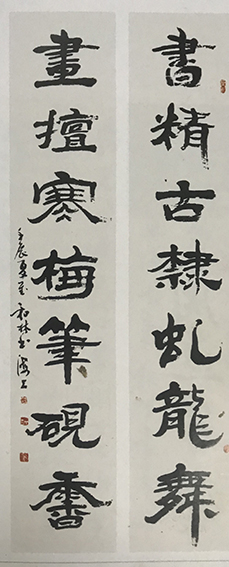 書精古隸虬龍舞
畫擅寒梅筆硯香
壬辰夏至 和林書 海上